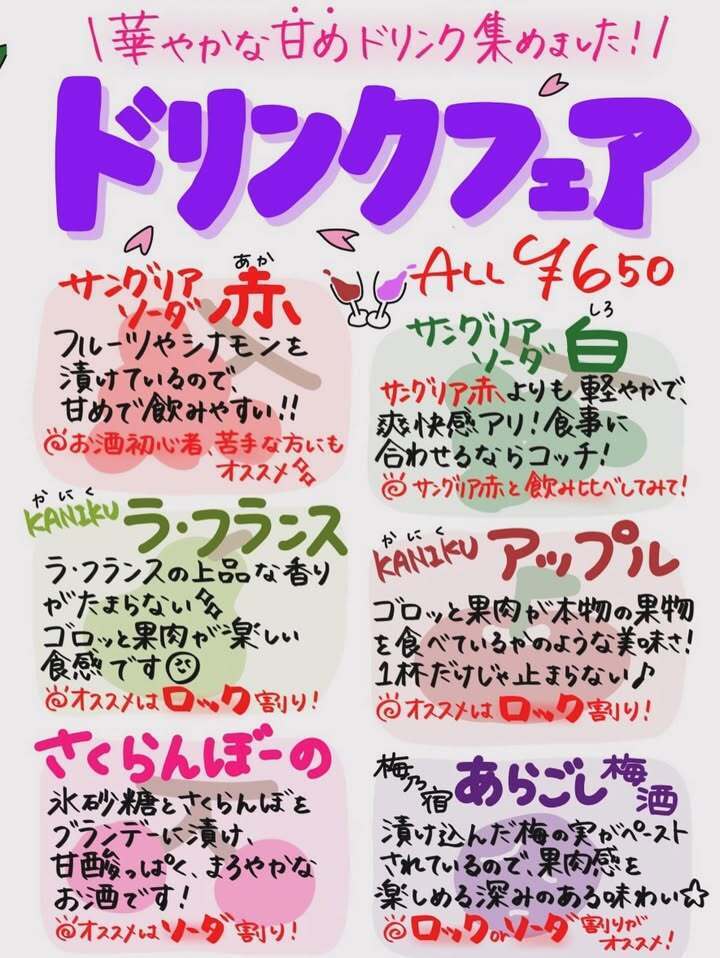 \華やかな甘めドリンク集めました!/
ドリンクフェア
ALL ¥650
あか
サングリア
ソーダ 赤
フルーツやシナモンを
漬けているので
甘めで飲みやすい!!
◎お酒初心者、苦手な方にも
オススメ
しろ
サングリア
ソーダ 白
サングリア赤よりも軽やかで、
爽快感アリ!食事に
合わせるならコッチ!
◎サングリア赤と飲み比べしてみて!
かにく
KANIKU ラ・フランス
ラ・フランスの上品な香り
がたまらない
ゴロッと果肉が楽しい
食感です
◎オススメはロック割り!
かにく
KANIKU アップル
ゴロッと果肉が本物の果物
を食べているかのような美味さ!
1杯だけじゃ止まらない♪
◎オススメはロック割り!
さくらんぼーの
氷砂糖とさくらんぼを
ブランデーに漬け、
甘酸っぱく、まろやかな
お酒です!
◎オススメはソーダ割り!
梅乃宿 あらごし梅酒
漬け込んだ梅の実がペースト
されているので、果肉感を
楽しめる深みのある味わい☆
◎ロックorソーダ割りが
オススメ!